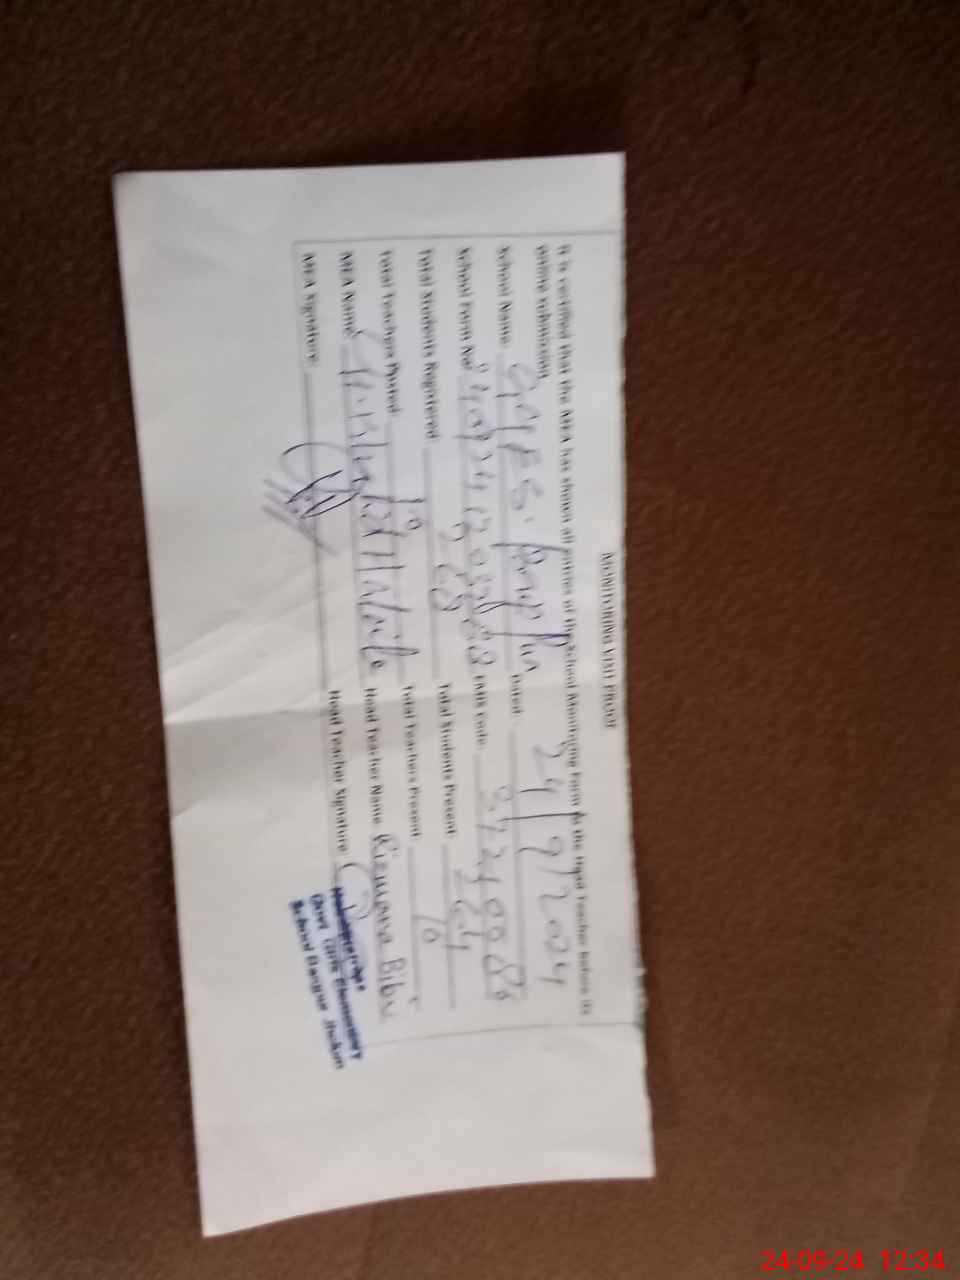 MONITORING VISIT PROOF
It is certified that the MEA has shown all entries of the School Monitoring Form to the Head Teacher before its
online submission
School Name: GGES. Dated: 24/9/2024
School Form No: EMIS Code: 37240086
Total Students Registered: 268 Total Students Present: 264
Total Teachers Posted: 10 Total Teachers Present: 10
MEA Name: Head Teacher Name: Rizwana Bibi
MEA Signature: Head Teacher Signature:
Headmistress
Govt Girls Elementary
School Jhelum
24-09-24 12:34